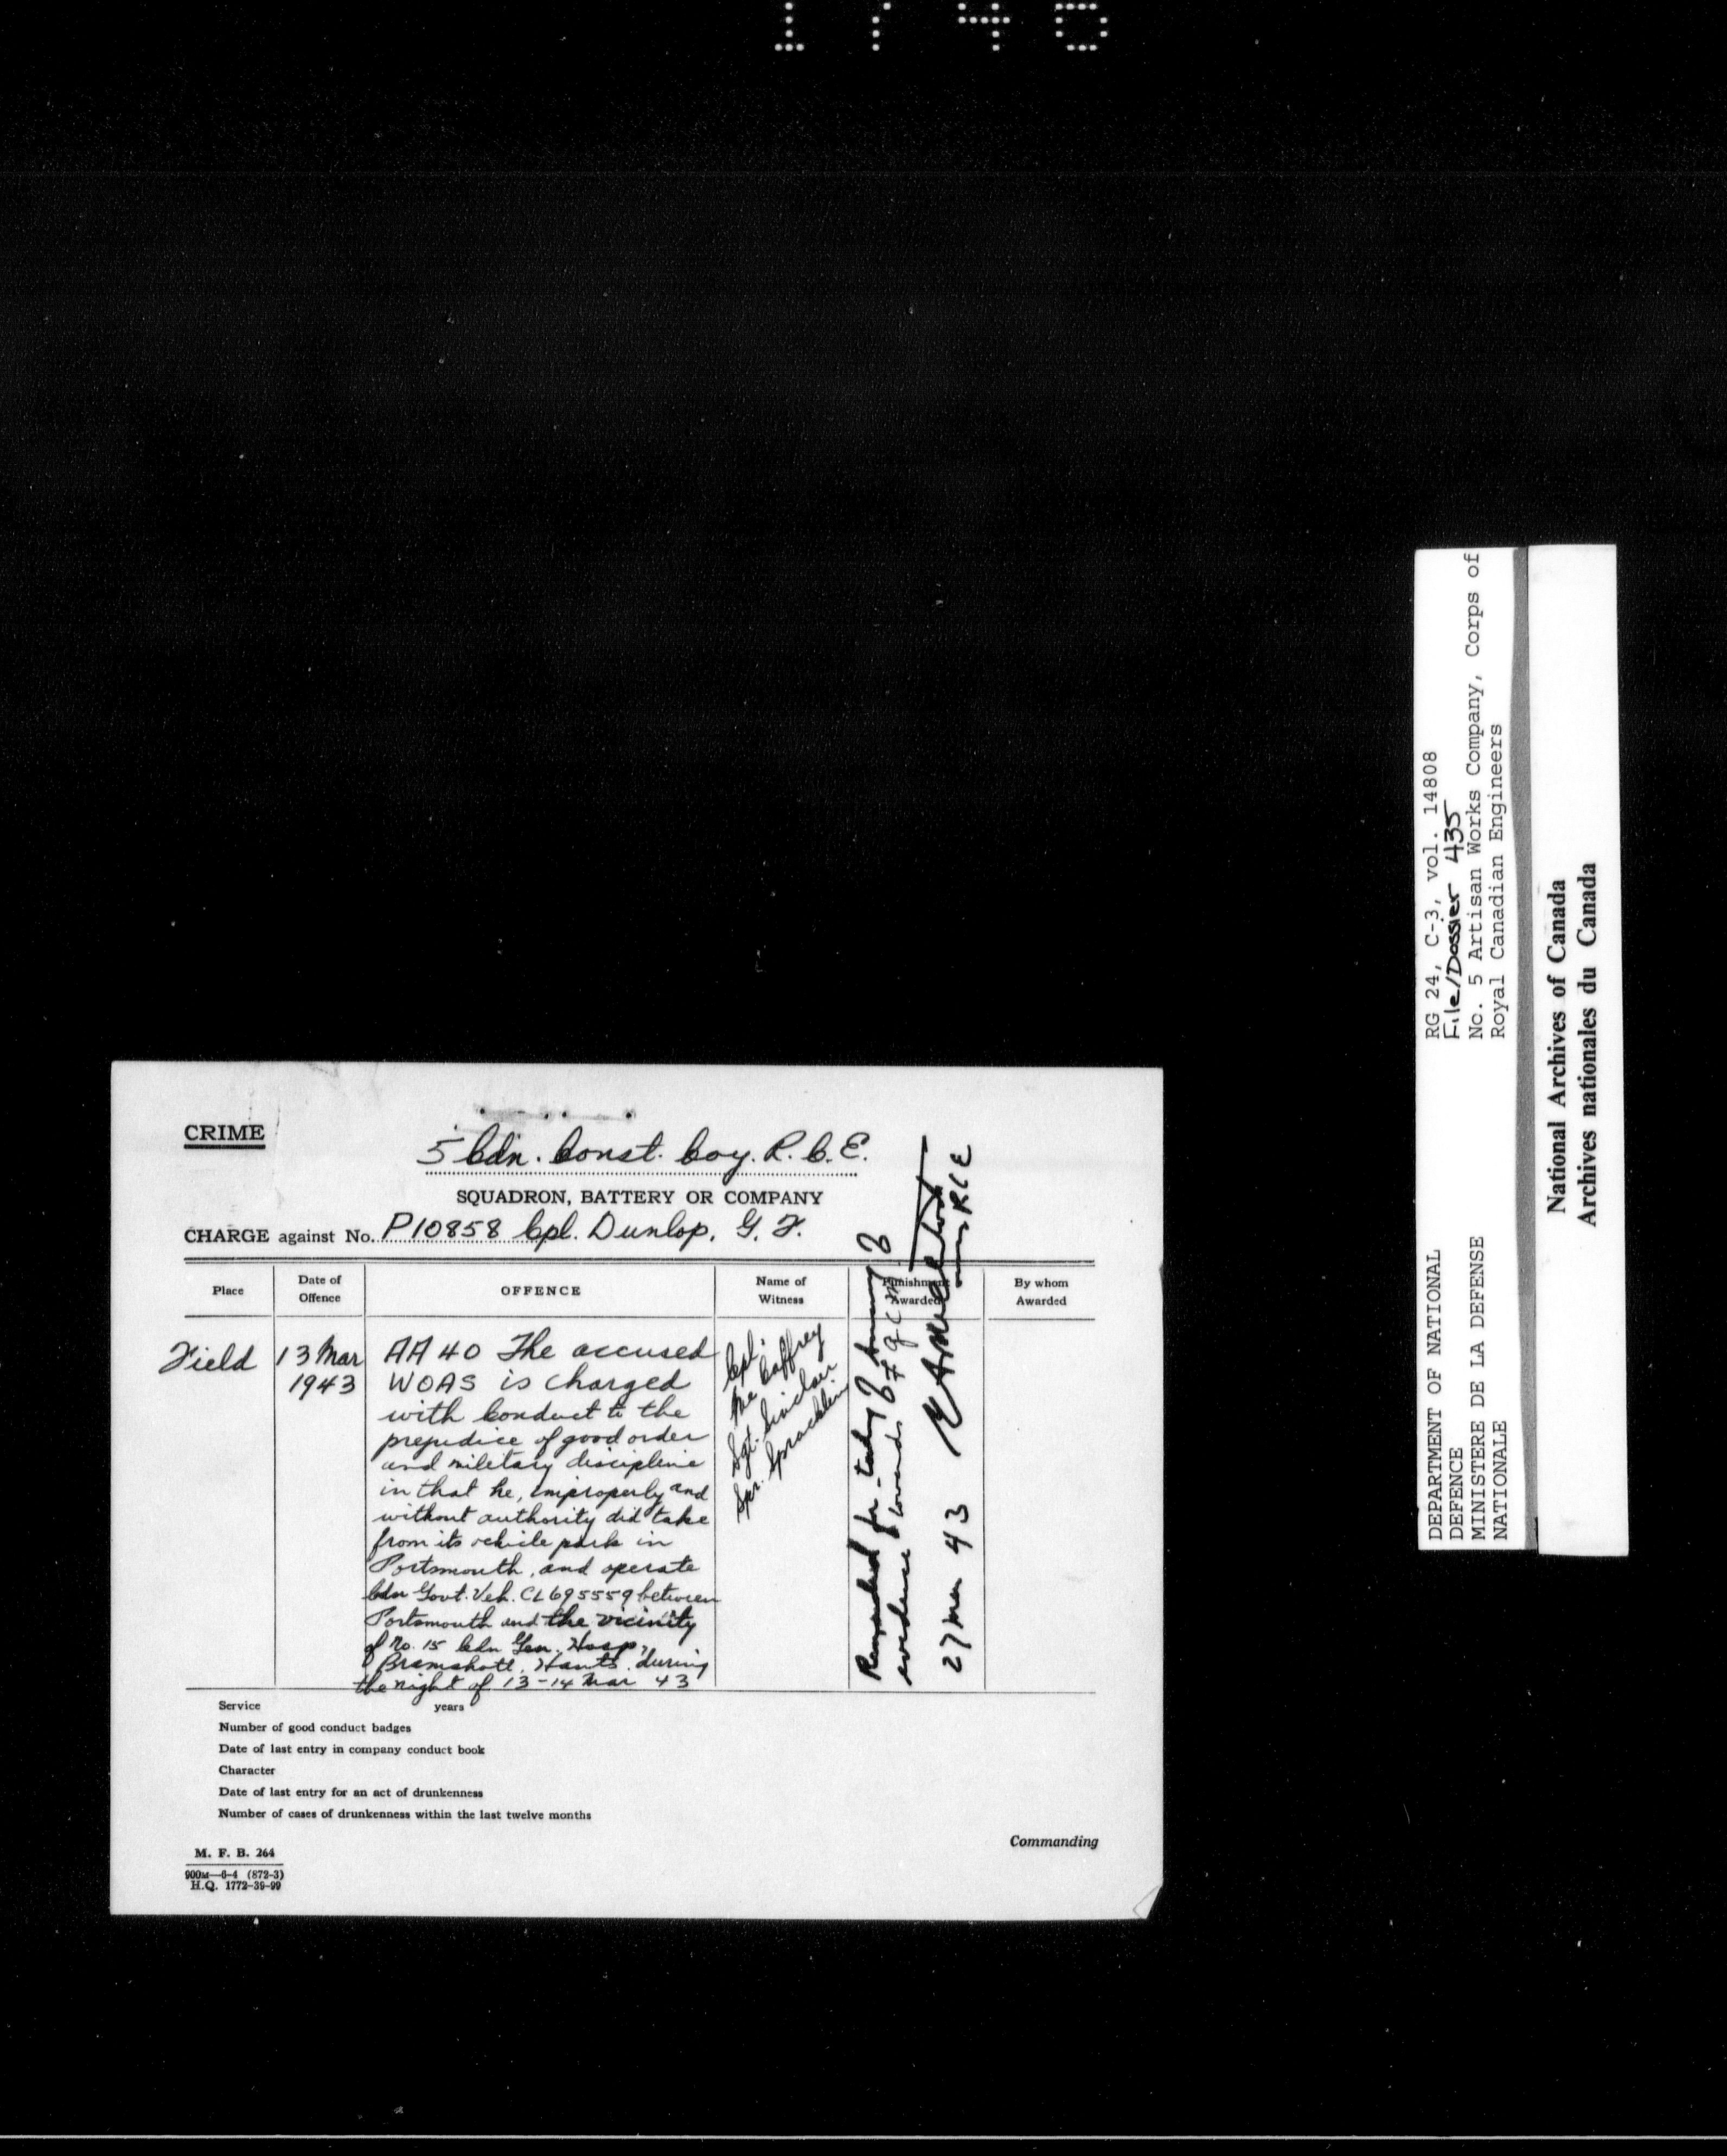 1740
CRIME
5 Cdn. Const. Coy. R.C.E.
SQUADRON, BATTERY OR COMPANY
CHARGE against No. P10858 Cpl. Dunlop, G. F.
Place
Date of
Offence
OFFENCE
Name of
Witness
Punishment
Awarded
By whom
Awarded
Field
13 Mar
1943
AA 40 The accused
WOAS is charged
with conduct to the
prejudice of good order
and military discipline
in that he, improperly and
without authority did take
from its vehicle park in
Portsmouth, and operate
Cdn Govt. Veh. CL695559 between
Portsmouth and the vicinity
of No. 15 Cdn Gen. Hosp,
Bramshott, Hants. during
the night of 13-14 Mar 43
Cpl.
Mc Caffrey
Sgt. Sinclair
Spr. Spracklin
Remanded for taking of summary of
evidence towards F G C M
27 Mar 43
RCE
Service years
Number of good conduct badges
Date of last entry in company conduct book
Character
Date of last entry for an act of drunkenness
Number of cases of drunkenness within the last twelve months
Commanding
M. F. B. 264
900M—6-4 (872-3)
H.Q. 1772-39-99
DEPARTMENT OF NATIONAL
DEFENCE
MINISTERE DE LA DEFENSE
NATIONALE
RG 24, C-3, vol. 14808
File/Dossier 435
No. 5 Artisan Works Company, Corps of
Royal Canadian Engineers
National Archives of Canada
Archives nationales du Canada